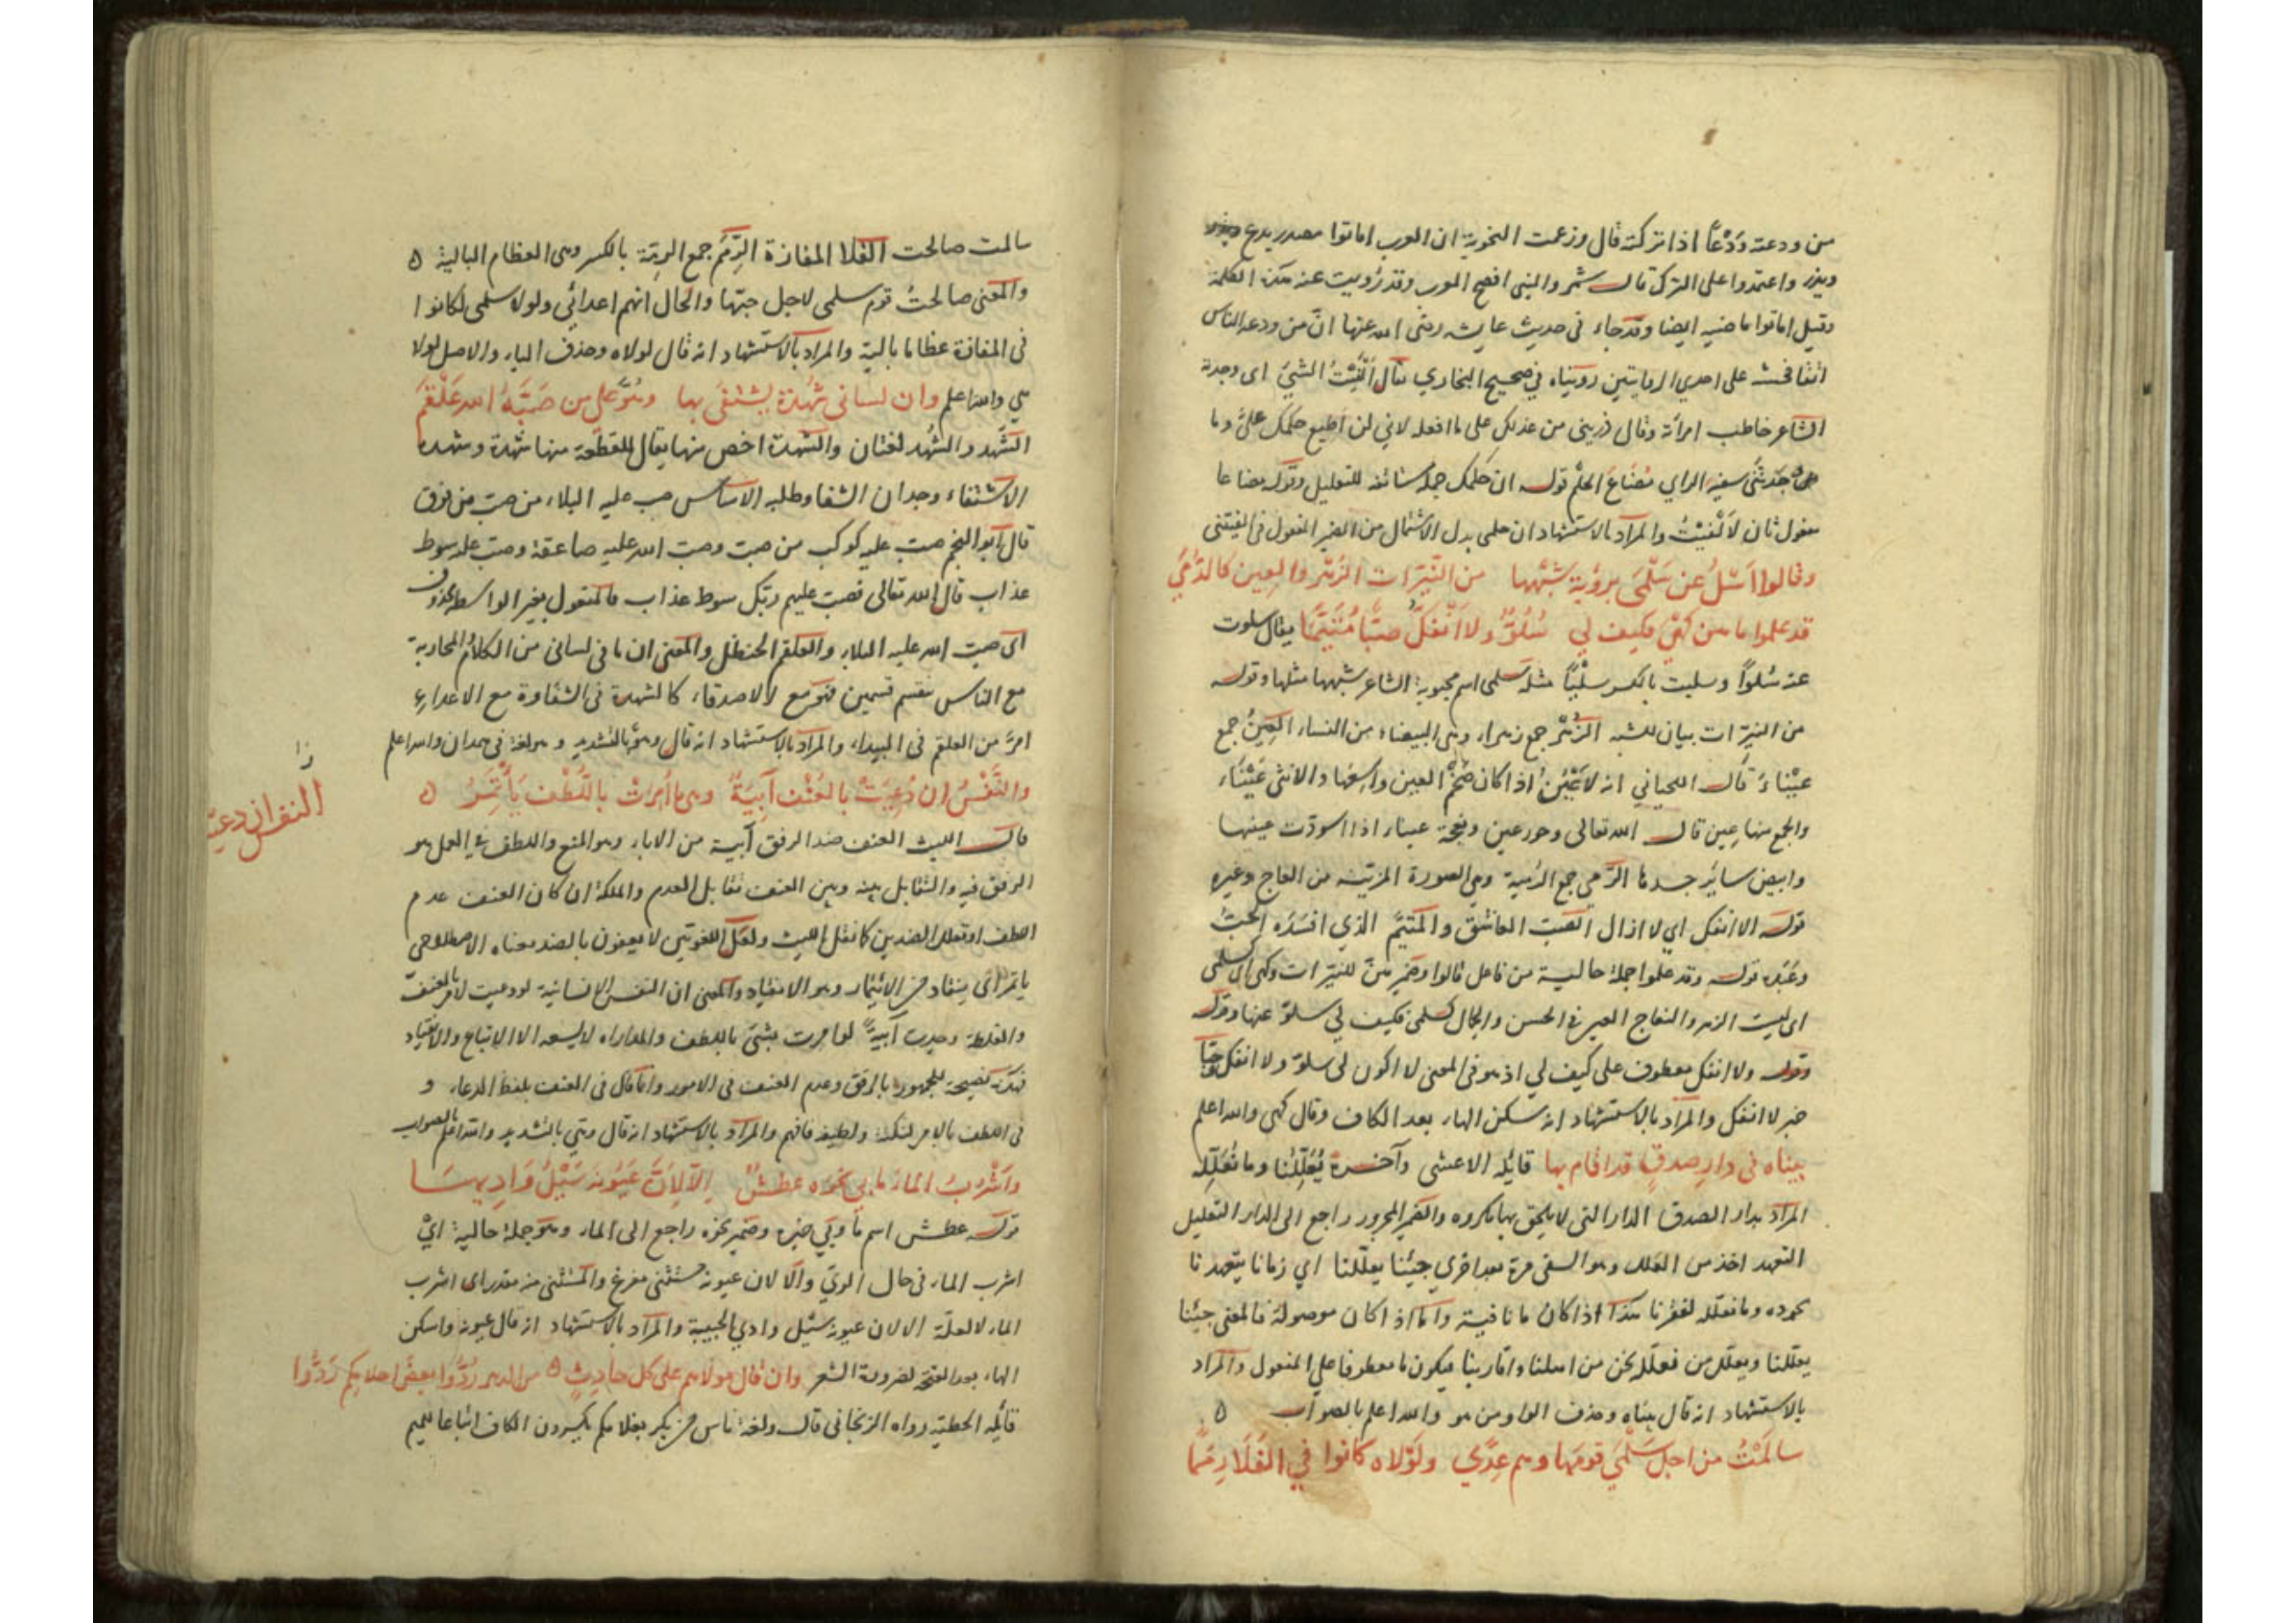 من ودعته وَدْعًا اذا تركته قال وزعمت النحوية ان العرب اماتوا مصدر يدع
ويذر واعتمدوا على الترك قال شمر والنبى افصح العرب وقد رُويت عنه هذه الكلمة
وقيل اماتوا ماضيه ايضا وقد جاء فى حديث عايشه رضى الله عنها انّ من ودعه الناس
اتقا فحشه على احدي الروايتين رويناه في صحيح البخاري يقال اَلْفَيْتُ الشئ اى وجدته
الشاعر خاطب امرأة وقال ذرينى من عذلك على ما افعله لانى لن اطيع حكمك علىّ وما
وجدتنى سفيه الراي مُضَاعَ الحلم قوله ان حكمك جملة مستانفه للتعليل وقوله مضاعا
مفعول ثان لاَلْفَيْتُ والمراد بالاستشهاد ان حلمى بدل الاشتمال من الضمير المفعول فى الفيتنى
وقالوا اَسْلُ عن سَلْمَى برؤية شبهها من النَيّرات الزُهْر والعِين كالدُمَي
قد علموا ما هن كهْىَ فكيف لي سُلُوٌّ ولا اَنْفَكُّ صبًّا مُتَيَّمًا يقال سلوت
عنه سُلوًّا وسليت بالكسر سليًا مثله سلمى اسم محبوبة الشاعر شبهها مثلها وقوله
من النيرات بيان للشبه الزُهْر جمع زهراء وهى البيضاء من النساء العِينُ جمع
عَيْناءَ قال اللحياني انه لاَعْيَنُ اذا كان ضخْمُ العين واسعَها والانثى عَيْنَاء
والجمع منها عِين قال الله تعالى وحور عين ونعجة عيناء اذا اسودّت عينها
وابيض سائر جسدها الدُمي جمع الدُمية وهي الصورة المزيّنة من العاج وغيره
قوله لا انفكّ اي لا ازال الصَبّ العاشق والمتيّم الذي افسَدَه الحبّ
وعَبَدَه قوله وقد علموا جملة حالية من فاعل قالوا وضمير هنّ للنيّرات وكهى اى كسلمى
اى ليست الزهر والنعاج العير فى الحسن والجمال كسلمى فكيف لي سلوّ عنها وقوله
وقوله ولا انفكّ معطوف على كيف لي اذ هو فى المعنى لا اكون لى سلوّ ولا انفكّ صبًّا
خبر لا انفكّ والمراد بالاستشهاد انه سكن الهاء بعد الكاف وقال كهى والله اعلم
بيناه فى دارِ صدقٍ قد اقام بها قايله الاعشى وآخره يُعَلِّلُنا وما نُعَلِّلُه
المراد بدار الصدق الدار التى لا يلحق بها مكروه والضمير المجرور راجع الى الدار التعليل
التعهد اخذ من العَلَل وهو السقى مرة بعد اخرى حِينًا يعلّلنا اي زمانا يتعهدنا
بجوده وما نعلّله لفقرنا هذا اذا كان ما نافية واما اذا كان موصولة فالمعنى حينًا
يعلّلنا ويعلّل من نعلّله نحن من اهلنا واقاربنا فيكون ما معطوفا على المفعول والمراد
بالاستشهاد انه قال بيناه وحذف الواو من هو والله اعلم بالصواب ه
سالَمْتُ من اجلِ سَلْمَى قومَها وهم عِدًى ولَوْلاه كانوا في الفَلَا رِمَمًا
سالمت صالحت الفَلا المفازة الرِّمَم جمع الرِمّة بالكسر وهى العظام البالية ه
والمعنى صالحتُ قوم سلمى لاجل حبّها والحال انهم اعدائى ولولا سلمى لكانوا
فى المفازة عظاما بالية والمراد بالاستشهاد انه قال لولاه وحذف الياء والاصل لولا
هي والله اعلم وان لسانى شُهْدة يشتفى بها وهُوَّ على من صَبَّهُ الله علْقَمُ
الشَهْد والشُهْد لغتان والشُهدة اخص منها يقال للقطعة منها شُهدة وشَهدة
الاشتفاء وجدان الشفا وطلبه الاساس صب عليه البلاء من صبّ من فوق
قال ابو النجم صبّ عليه كوكب من صبّ وصبّ الله عليه صاعقة وصبّ عليه سوط
عذاب قال الله تعالى فصبّ عليهم ربك سوط عذاب فالمفعول بغير الواسطة محذوف
اى صبّ الله عليه البلاء والعلقم الحنظل والمعنى ان ما فى لسانى من الكلام المحاربة
مع الناس ينقسم قسمين فهو مع الاصدقاء كالشهدة فى الشفاوة مع الاعداء
امرّ من العلقم فى البيداء والمراد بالاستشهاد انه قال وهوّ بالتشديد وهو لغة فى همدان والله اعلم
والنَّفْسُ ان دُعِيَتْ بالعُنْفِ آبِيَةٌ وهىّ ما اُمِرَتْ باللُطْفِ يَأْتَمِرُ ه
قال الليث العنف ضد الرفق آبية من الاباء وهو المنع واللطف في العمل هو
الرفق فيه والتقابل بينه وبين العنف تقابل العدم والملكة ان كان العنف عدم
اللطف او تقابل الضدين كما نقل الليث ولعلّ اللغويّين لا يعنون بالضد معناه الاصطلاحى
ياتمر اى ينقاد من الائتمار وهو الانقياد والمعنى ان النفس الانسانية لو دعيت لامر بالعنف
والغلظة وجدت آبيةً لو امرت بشئ باللطف والمداراه لا يسعه الا الاتباع والانقياد
فهذه نصيحة للجمهور بالرفق وعدم العنف فى الامور وانما قال فى العنف بلفظ الدعاء و
فى اللطف بالامر لنكتة ولطيفة فافهم والمراد بالاستشهاد انه قال وهيّ بالتشديد والله اعلم بالصواب
واَشْرَبُ الماء ما بي نحوَه عطشٌ اِلّا لِانّ عُيُونهْ سَيْلُ وَادِيهَا
قوله عطش اسم ما وبي خبره وضمير نحوه راجع الى الماء وهو جملة حالية اى
اشرب الماء فى حال الريّ والّا لان عيونه مستثنى مفرغ والمستثنى منه مقدر اى اشرب
الماء لا لعلّة الا لان عيونه سَيْل وادي الحبيبة والمراد بالاستشهاد انه قال عيونه واسكن
الهاء بعد الفتحة لضرورة الشعر وان قال مولاهم على كل حادثٍ ه من الدهر رُدُّوا بعضَ احلامِكِم رَدُّوا
قايله الحطيئة رواه الزنجانى قال ولغة ناس من بكر بغلامكِم يكسرون الكاف اتباعا للميم
نا
النفس ان دعيت